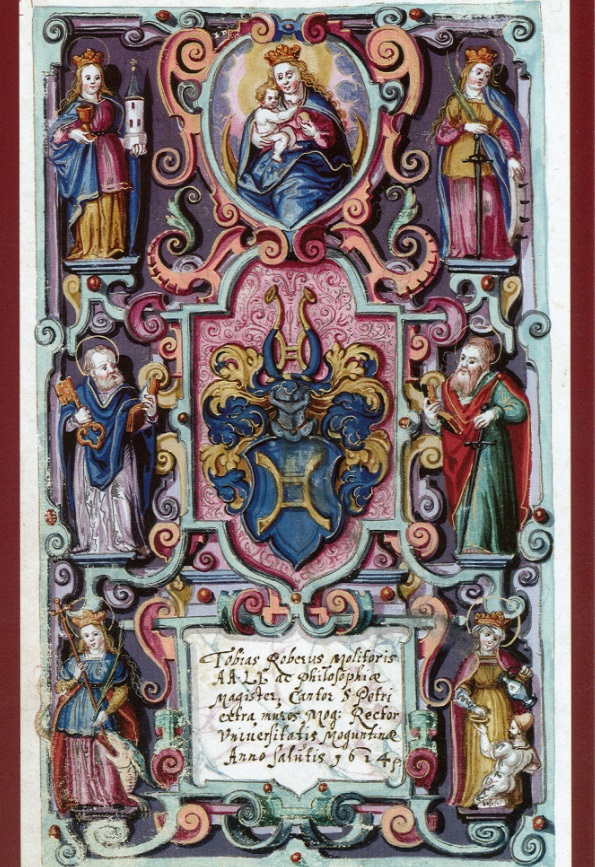 Tobias Roberus Molitoris
AA. LL. ac Philosophiæ
Magister, Cantor S. Petri
extra muros Mog: Rector
Universitatis Moguntinæ
Anno salutis 1624